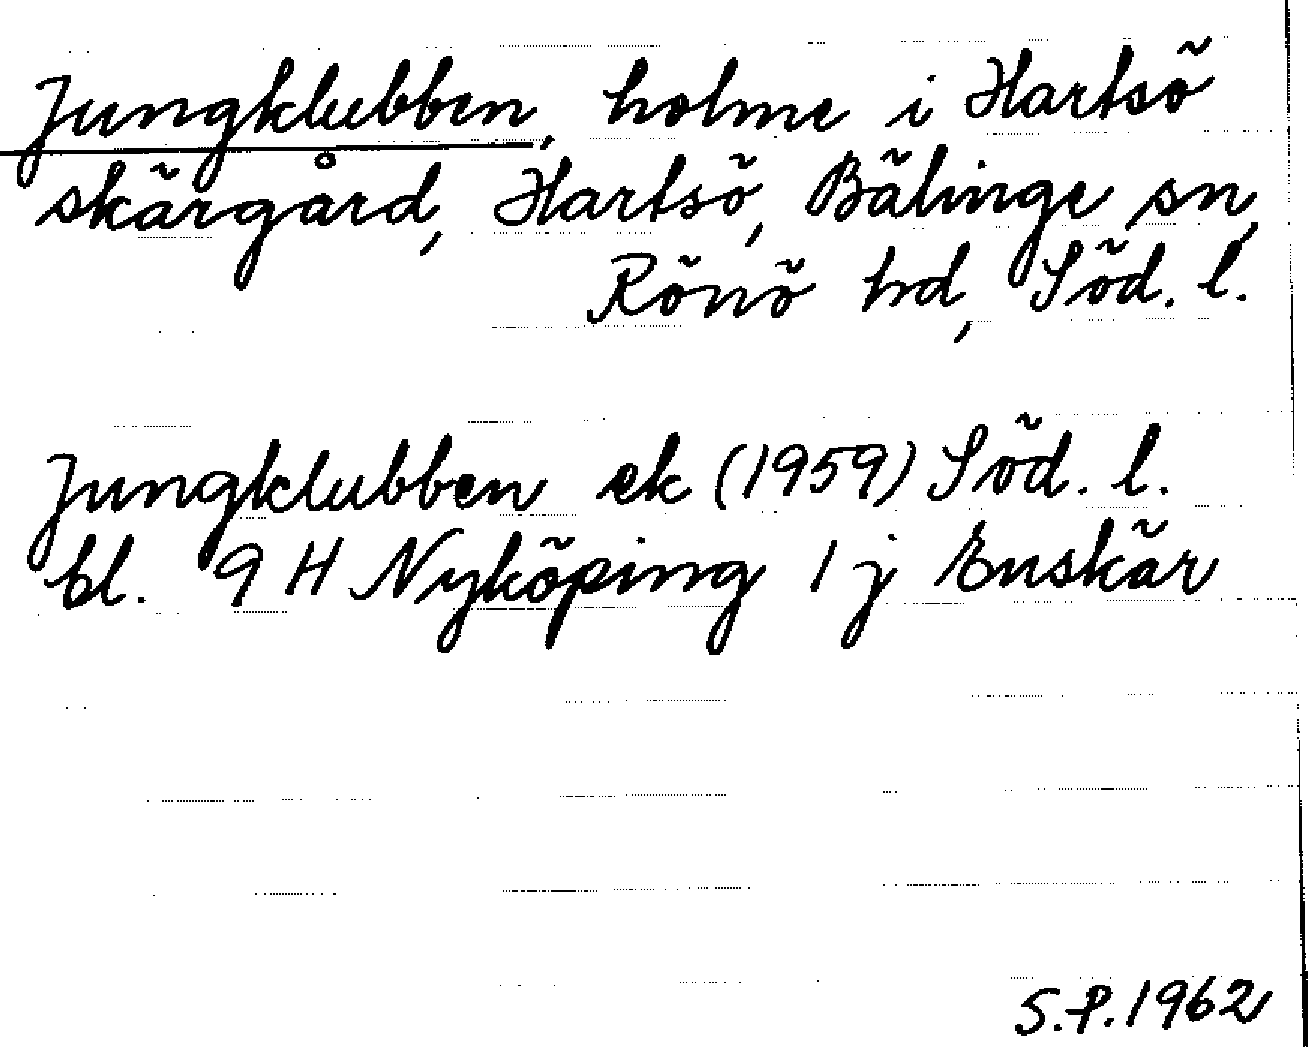 Jungklubben, holme i Hartsö
skärgård, Hartsö, Bälinge sn,
Rönö hd, Söd. l.
Jungklubben ek (1959) Söd. l.
bl. 9 H Nyköping 1 j Enskär
S.P. 1962